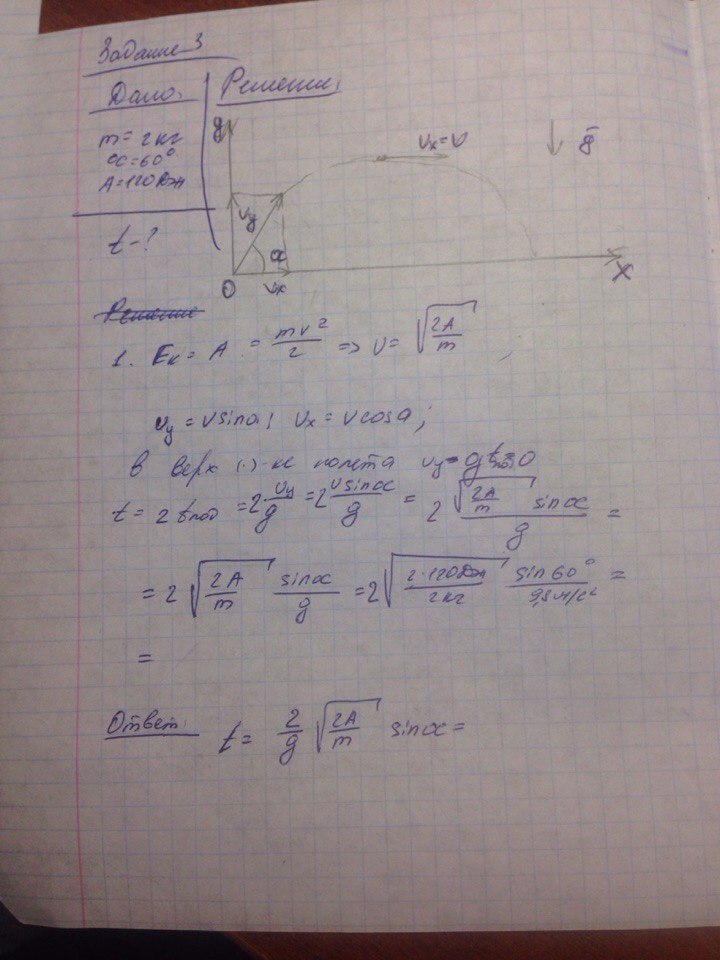 Задание 3
Дано: Решение:
m = 2 кг
α = 60°
A = 120 Дж
t - ?
y
Vx = V
g
Vy
α
O Vx X
Решение
1. Eк = A = mv²/2 => V = √(2A/m) ,
Vy = V sinα; Vx = V cosα;
в верх (·)-ке полета Vy = gtпод = 0
t = 2 tпод = 2·Vy/g = 2 V sinα/g = 2 √(2A/m) sinα/g =
= 2 √(2A/m) sinα/g = 2√(2·120Дж/2кг) sin60°/9,8м/с² =
=
Ответ: t = 2/g √(2A/m) sinα =